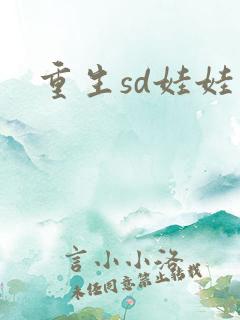 重生sd娃娃
言小小洛
未经同意禁止转载